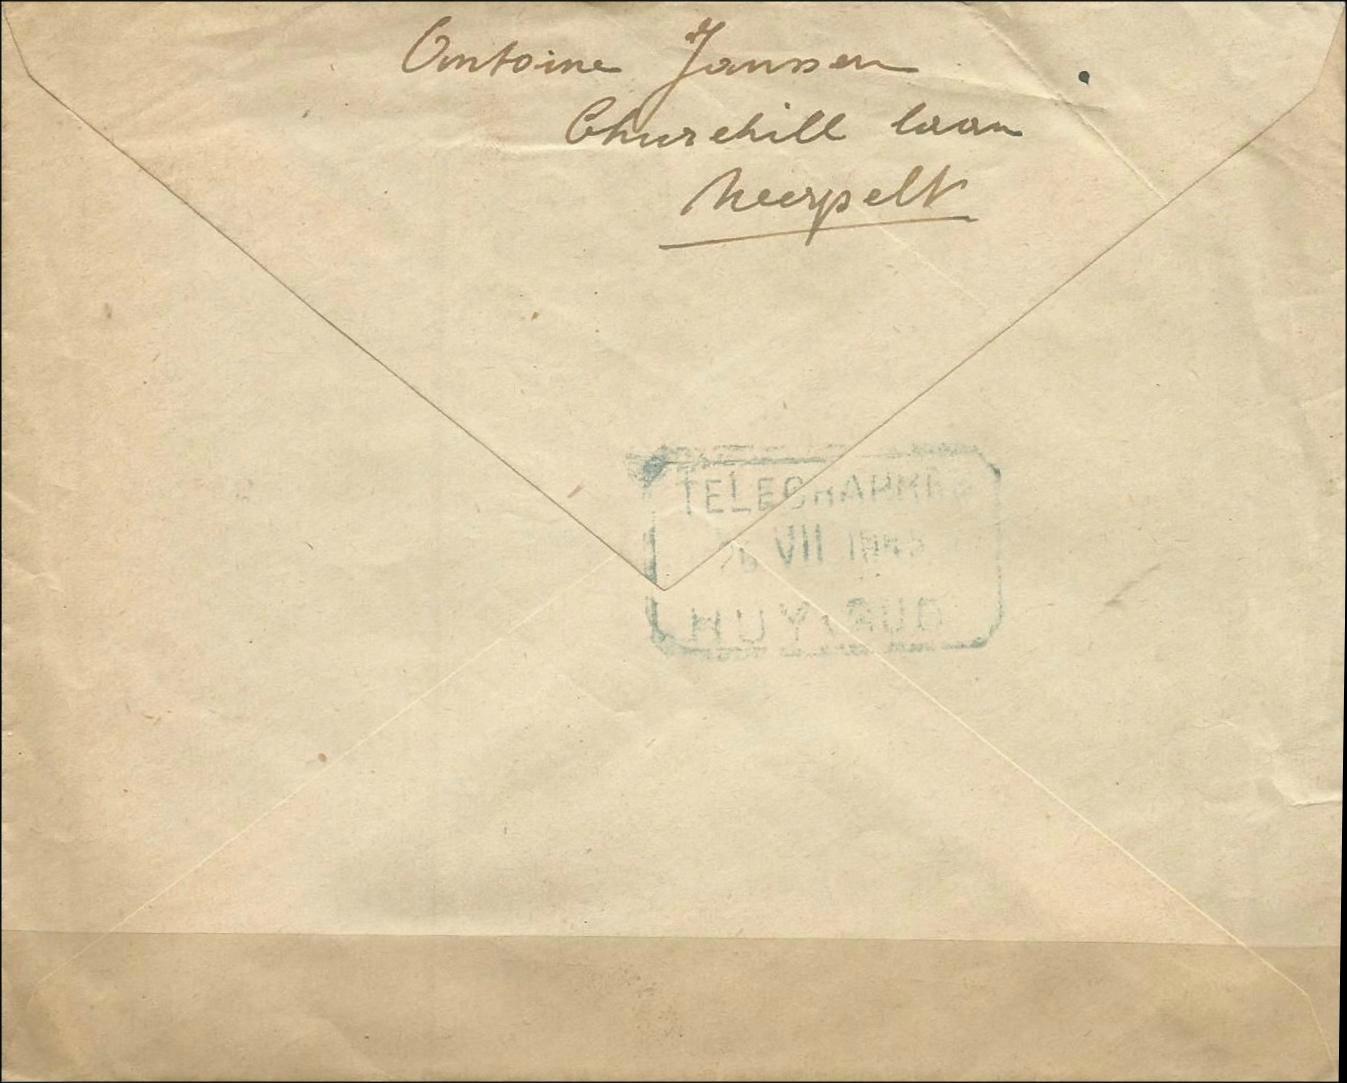 Antoine Janssen
Churchill laan
Neerpelt
TELEGRAMMES
VII
HUY/SUD